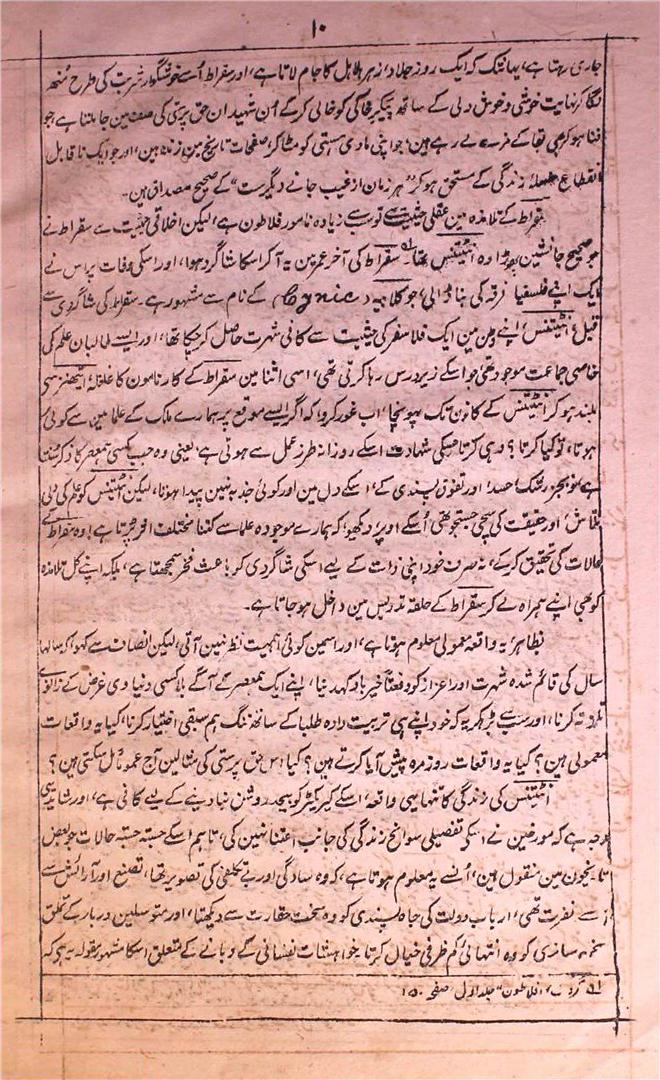 ۱۰
جاری رہتا ہے، یہانتک کہ ایک روز جلاد، زہر ہلاہل کا جام لاتا ہے، اور سقراط اُسے خوشگوار شربت کی طرح مُنھ
لگا کر نہایت خوشی و خوش دلی کے ساتھ پیکر خاکی کو خالی کر کے اُن شہیدان حق پرستی کی صف مین جا ملتا ہے، جو
فنا ہو کر بھی بقا کے مزے لے رہے ہین، جو اپنی مادی ہستی کو مٹا کر، صفحات تاریخ مین زندہ ہین، اور جو ایک ناقابل
انقطاع سلسلۂ زندگی کے مستحق ہو کر "ہر زمان از غیب جانے دیگرست" کے صحیح مصداق ہین۔
سقراط کے تلامذہ مین عقلی حیثیت سے تو سب سے زیادہ نامور فلاطون ہے، لیکن اخلاقی حیثیت سے سقراط نے
جو صحیح جانشین چھوڑا وہ انٹیٹنس تھا۔ سقراط کی آخر عمر مین یہ آکر اسکا شاگرد ہوا، اور اسکی وفات پر اس نے
ایک اپنے فلسفیا فرقہ کی بنا ڈالی، جو کلابیہ (Cynic) کے نام سے مشہور ہے۔ سقراط کی شاگردی سے
قبل، انٹیٹنس، اپنے وطن مین ایک فلاسفر کی حیثیت سے کافی شہرت حاصل کر چکا تھا، اور ایسے طالبان علم کی
خاصی جماعت موجود تھی جو اسکے زیر درس رہا کرتی تھی، اسی اثنا مین سقراط کے کارنامون کا غلغلہ، ایتھنز سی
بلند ہو کر انٹیٹنس کے کانون تک پہونچا، اب غور کرو، کہ اگر ایسے موقع پر ہمارے ملک کے علما مین سے کوئی
ہوتا، تو کیا کرتا؟ وہی کرتا جسکی شہادت اسکے روزانہ طرز عمل سے ہوتی ہے، یعنی وہ جب کسی ہمعصر کا ذکر سُنتا
ہے، تو بجز رشک، حسد، اور تفوق پسندی کے، اسکے دل مین اور کوئی جذبہ نہین پیدا ہوتا، لیکن انٹیٹنس کو علم کی دلی
تلاش، اور حقیقت کی سچی جستجو تھی، اُسکے اوپر دیکھو، کہ ہمارے موجودہ علما سے کتنا مختلف اثر پڑتا ہے! وہ سقراط کے
حالات کی تحقیق کر کے، نہ صرف خود اپنی ذات کے لیے اسکی شاگردی کو باعث فخر سمجھتا ہے، بلکہ اپنے کل تلامذہ
کو بھی اپنے ہمراہ لے کر سقراط کے حلقہ تدریس مین داخل ہو جاتا ہے۔
بظاہر، یہ واقعہ معمولی معلوم ہوتا ہے، اور اسمین کوئی اہمیت نظر نہین آتی، لیکن انصاف سے کہو، کہ سالہا
سال کی قائم شدہ شہرت اور اعزاز کو دفعۃً خیر باد کہدینا، اپنے ایک ہمعصر کے آگے بلا کسی دنیاوی غرض کے زانوے
تلمذ تہ کرنا، اور سب سے بڑھکر یہ کہ خود اپنے ہی تربیت دادہ طلبا کے ساتھ ننگ ہم سبقی اختیار کرنا، کیا یہ واقعات
معمولی ہین؟ کیا یہ واقعات روزمرہ پیش آیا کرتے ہین؟ کیا اس حق پرستی کی مثالین آج عموماً مل سکتی ہین؟
انٹیٹنس کی زندگی کا تنہا یہی واقعہ، اسکے کیرکٹر کو بیحد روشن بنا دینے کے لیے کافی ہے، اور شاید یہی
وجہ ہے کہ مورخین نے اسکی تفصیلی سوانح زندگی کی جانب اعتنا نہین کی، تاہم اسکے جستہ جستہ حالات جو بعض
تاریخون مین منقول ہین، اُنسے یہ معلوم ہوتا ہے، کہ وہ سادگی اور بے تکلفی کی تصویر تھا، تصنع اور آرائش سے
اُسے نفرت تھی، ارباب دولت کی جاہ پسندی کو وہ سخت حقارت سے دیکھتا، اور متوسلین دربار کے تملق
سازی کو وہ انتہائی کم ظرفی خیال کرتا، خواہشات نفسانی کے دبانے کے متعلق اسکا مشہور مقولہ یہ ہی کہ
۱ہ گروٹ، "افلاطون" جلد اول صفحہ ۱۵۰